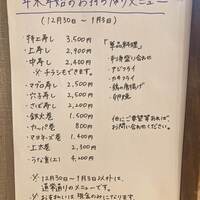 年末年始のお持ち帰りメニュー
(12月30日～1月3日)
・特上寿し 3,500円
・上寿し 2,900円
・中寿し 2,400円
※チラシもできます。
・マグロ寿し
・穴子寿し
・さば寿し 2,400円
・鉄火巻 1,500円
・カッパ巻 800円
・上太巻 2,300円
・うな重(上) 4,200円
※12月30日～1月3日以外は、
通常通りのメニューです。
※お支払いは現金のみになります。
「単品料理」
・刺身盛り合わせ
・アジフライ
・カキフライ
・鶏の唐揚げ
・卵焼
他にご希望等あれば、
お問い合わせください。